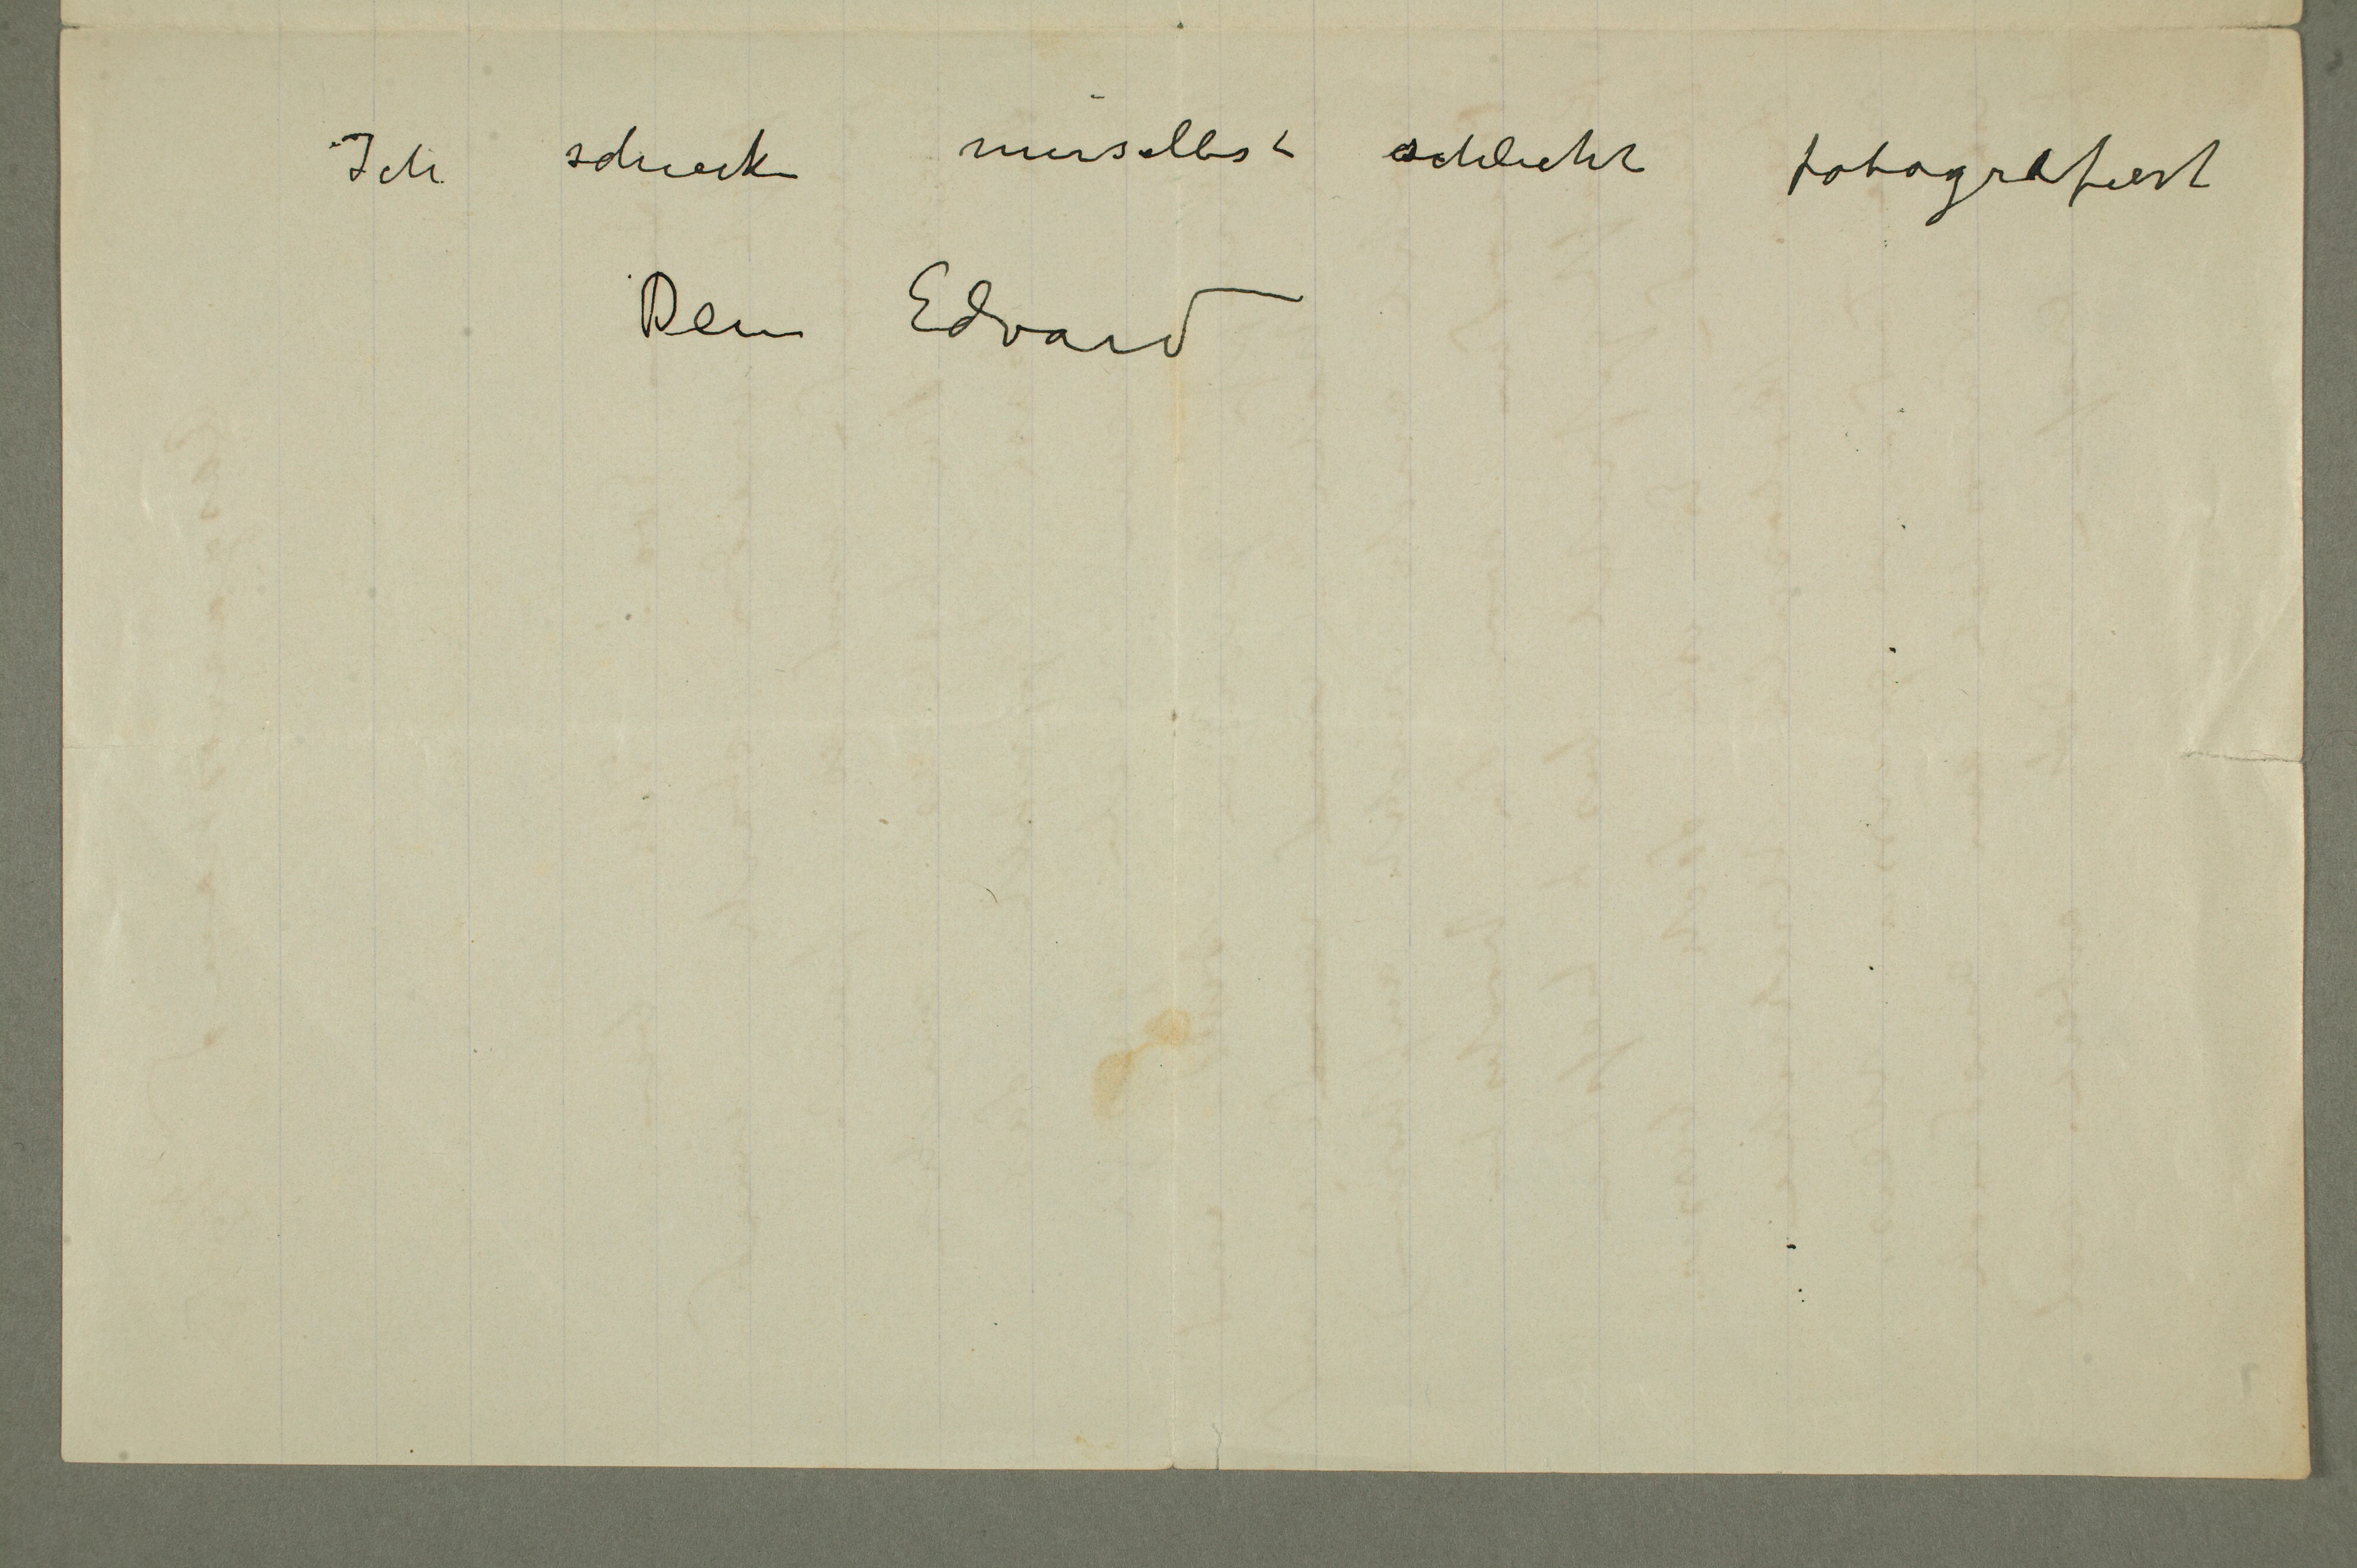 Ich schicke mirselbst schlecht fotografiert
Dein Edvard